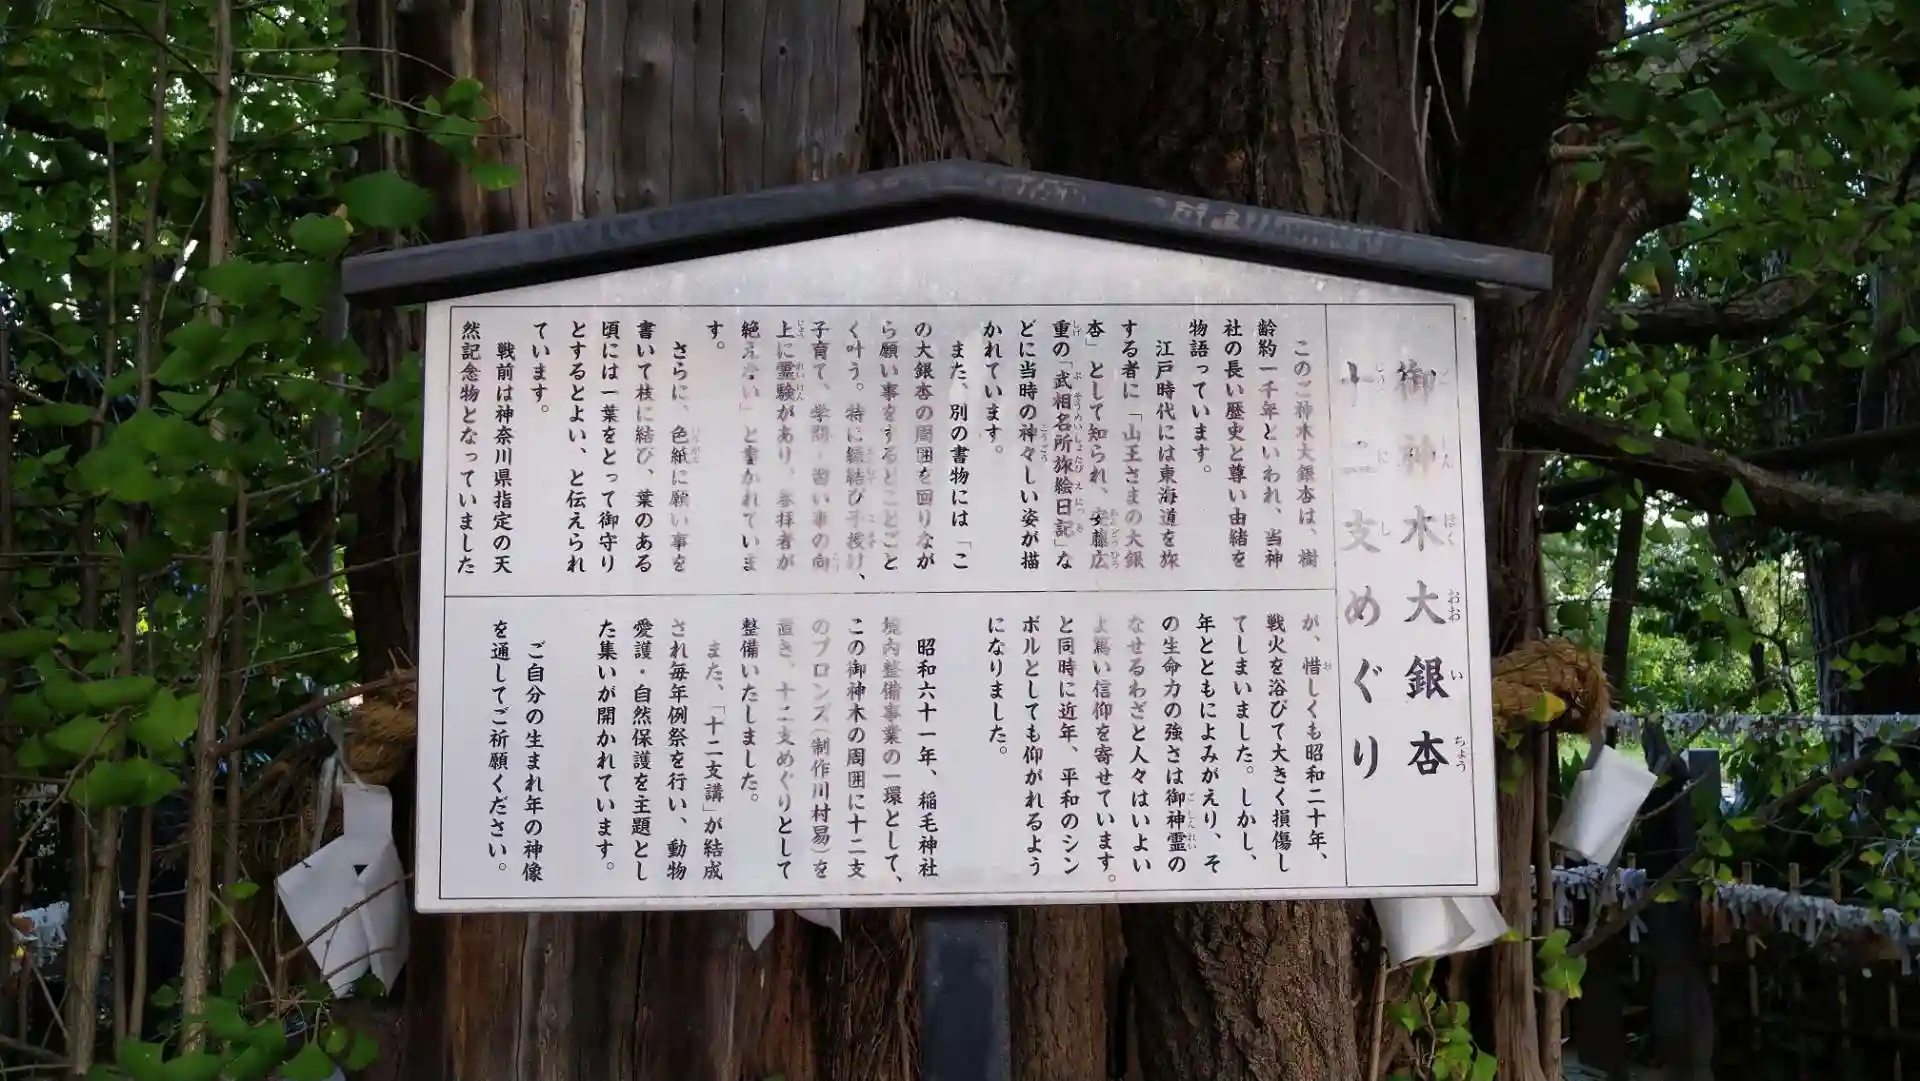 御神木大銀杏
十二支めぐり
このご神木大銀杏は、樹
齢約一千年といわれ、当神
社の長い歴史と尊い由緒を
物語っています。
江戸時代には東海道を旅
する者に「山王さまの大銀
杏」として知られ、安藤広
重の「武相名所旅絵日記」な
どに当時の神々しい姿が描
かれています。
また、別の書物には「こ
の大銀杏の周囲を回りなが
ら願い事をするとことごと
く叶う。特に縁結び子授け、
子育て、学問・習い事の向
上に霊験があり、参拝者が
絶えない」と書かれていま
す。
さらに、色紙に願い事を
書いて枝に結び、葉のある
頃には一葉をとって御守り
とするとよい、と伝えられ
ています。
戦前は神奈川県指定の天
然記念物となっていました
が、惜しくも昭和二十年、
戦火を浴びて大きく損傷し
てしまいました。しかし、
年とともによみがえり、そ
の生命力の強さは御神霊の
なせるわざと人々はいよい
よ篤い信仰を寄せています。
と同時に近年、平和のシン
ボルとしても仰がれるよう
になりました。
昭和六十一年、稲毛神社
境内整備事業の一環として、
この御神木の周囲に十二支
のブロンズ(制作川村易)を
置き、十二支めぐりとして
整備いたしました。
また、「十二支講」が結成
され毎年例祭を行い、動物
愛護・自然保護を主題とし
た集いが開かれています。
ご自分の生まれ年の神像
を通してご祈願ください。